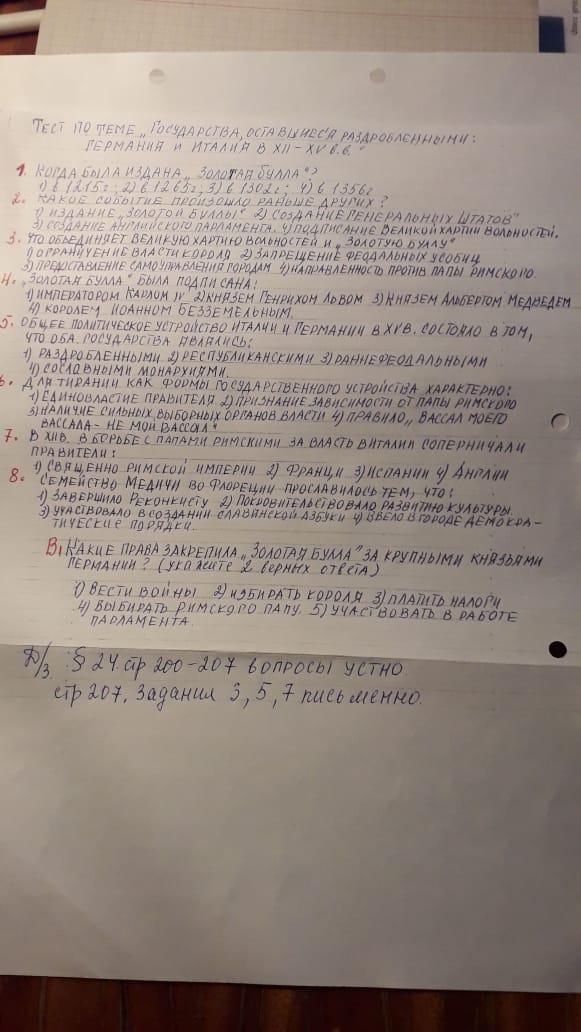 Тест по теме „Государства, оставшиеся раздробленными:
Германия и Италия в XII-XV в.в."
1. Когда была издана „Золотая булла"?
1) в 1215г; 2) в 1265г; 3) в 1302г; 4) в 1356г
2. Какое событие произошло раньше других?
1) издание „Золотой буллы" 2) создание Генеральных штатов"
3) создание английского парламента. 4) подписание Великой хартии вольностей.
3. Что объединяет Великую хартию вольностей и „Золотую буллу"
1) ограничение власти короля 2) запрещение феодальных усобиц
3) предоставление самоуправления городам 4) направленность против папы римского.
4. „Золотая булла" была подписана:
1) императором Карлом IV 2) князем Генрихом Львом 3) князем Альбертом Медведем
4) королем Иоанном Безземельным.
5. Общее политическое устройство Италии и Германии в XIVв. состояло в том,
что оба государства являлись:
1) раздробленными 2) республиканскими 3) раннефеодальными
4) сословными монархиями.
6. Для тирании как формы государственного устройства характерно:
1) единовластие правителя 2) признание зависимости от папы римского
3) наличие сильных выборных органов власти 4) правило „вассал моего
вассала - не мой вассал"
7. В XIIв. в борьбе с папами римскими за власть в Италии соперничали
правители:
1) Священно римской империи 2) Франци 3) Испании 4) Англии
8. Семейство Медичи во Флореции прославилось тем, что:
1) завершило Реконкисту 2) покровительствовало развитию культуры.
3) участвовало в создании славянской азбуки 4) ввело в городе демокра-
тические порядки.
В1 Какие права закрепила „Золотая булла" за крупными князьями
Германии? (укажите 2 верных ответа)
1) вести войны 2) избирать короля 3) платить налоги
4) выбирать римского папу. 5) участвовать в работе
парламента.
Д/з. § 24. стр 200-207 вопросы устно
стр 207. задания 3, 5, 7 письменно.